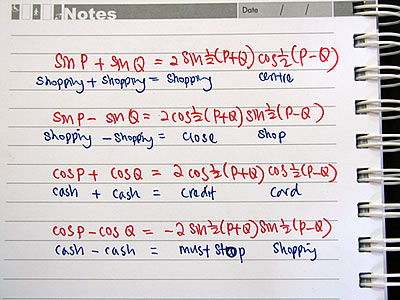 Notes
Date / /
sinP + sinQ = 2sin½(P+Q)cos½(P-Q)
shopping + shopping = shopping centre
sinP - sinQ = 2cos½(P+Q)sin½(P-Q)
shopping - shopping = close shop
cosP + cosQ = 2cos½(P+Q) cos½(P-Q)
cash + cash = credit card
cosP - cosQ = -2sin½(P+Q)sin½(P-Q)
cash - cash = must stop shopping